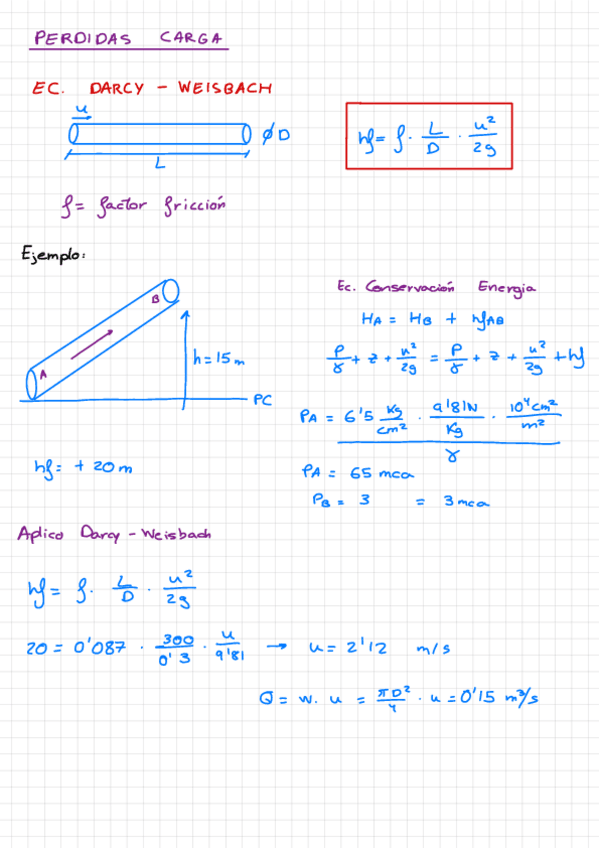 PERDIDAS CARGA
EC. DARCY - WEISBACH
u
φD
L
hf = f · L/D · u²/2g
f = factor fricción
Ejemplo:
B
A
h = 15 m
PC
Ec. Conservación Energia
HA = HB + hfAB
P/γ + z + u²/2g = P/γ + z + u²/2g + hf
PA = 6'5 Kg/cm² · 9'81N/Kg · 10⁴cm²/m²
γ
hf = + 20 m
PA = 65 mca
PB = 3 = 3 mca
Aplico Darcy - Weisbach
hf = f · L/D · u²/2g
20 = 0'087 · 300/0'3 · u/9'81 → u = 2'12 m/s
Q = w. u = πD²/4 · u = 0'15 m³/s